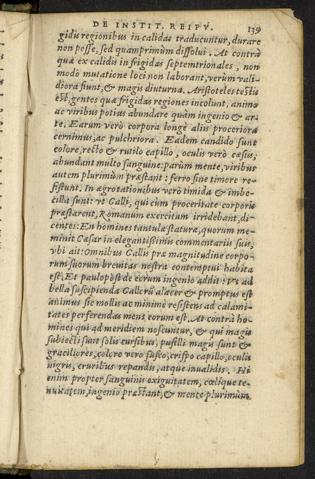 DE INSTIT. REIPV. 139
gidis regionibus in calidas traducuntur, durare
non posse, sed quamprimùm dissolui. At contrà
quæ ex calidis in frigidas septemtrionales, non
modò mutatione loci non laborant, verùm vali-
diora fiunt, & magis diuturna. Aristoteles testis
est, gentes quæ frigidas regiones incolunt, animo
ac viribus potius abundare quàm ingenio & ar-
te. Earum verò corpora longè aliis proceriora
cernimus, ac pulchriora. Eadem candido sunt
colore, recto & rutilo capillo, oculis verò cæsiis,
abundant multo sanguine: parùm mente, viribus
autem plurimùm præstant: ferro sine timore re-
sistunt. In ægrotationibus verò timida & imbe-
cilla sunt: vt Galli, qui cùm proceritate corporis
præstarent, Romanum exercitum irridebant, di-
centes: En homines tantulæ staturæ, quorum me-
minit Cæsar in elegantissimis commentariis suis,
vbi ait: Omnibus Gallis præ magnitudine corpo-
rum suorum breuitas nostra contemptui habita
est. Et paulopòst de eorum ingenio addit: vt ad
bella suscipienda Gallorũ alacer & promptus est
animus sic mollis ac minimè resistens ad calami-
tates perferendas mens eorum est. At contrà ho-
mines qui ad meridiem noscuntur, & qui magis
subiecti sunt solis cursibus, pusilli magis sunt &
graciliores, colore verò fusco, crispo capillo, oculis
nigris, cruribus repandis, atque inualidis. Hi
enim propter sanguinis exiguitatem, cœlique te-
nuitatem, ingenio præstant, & mente plurimùm.